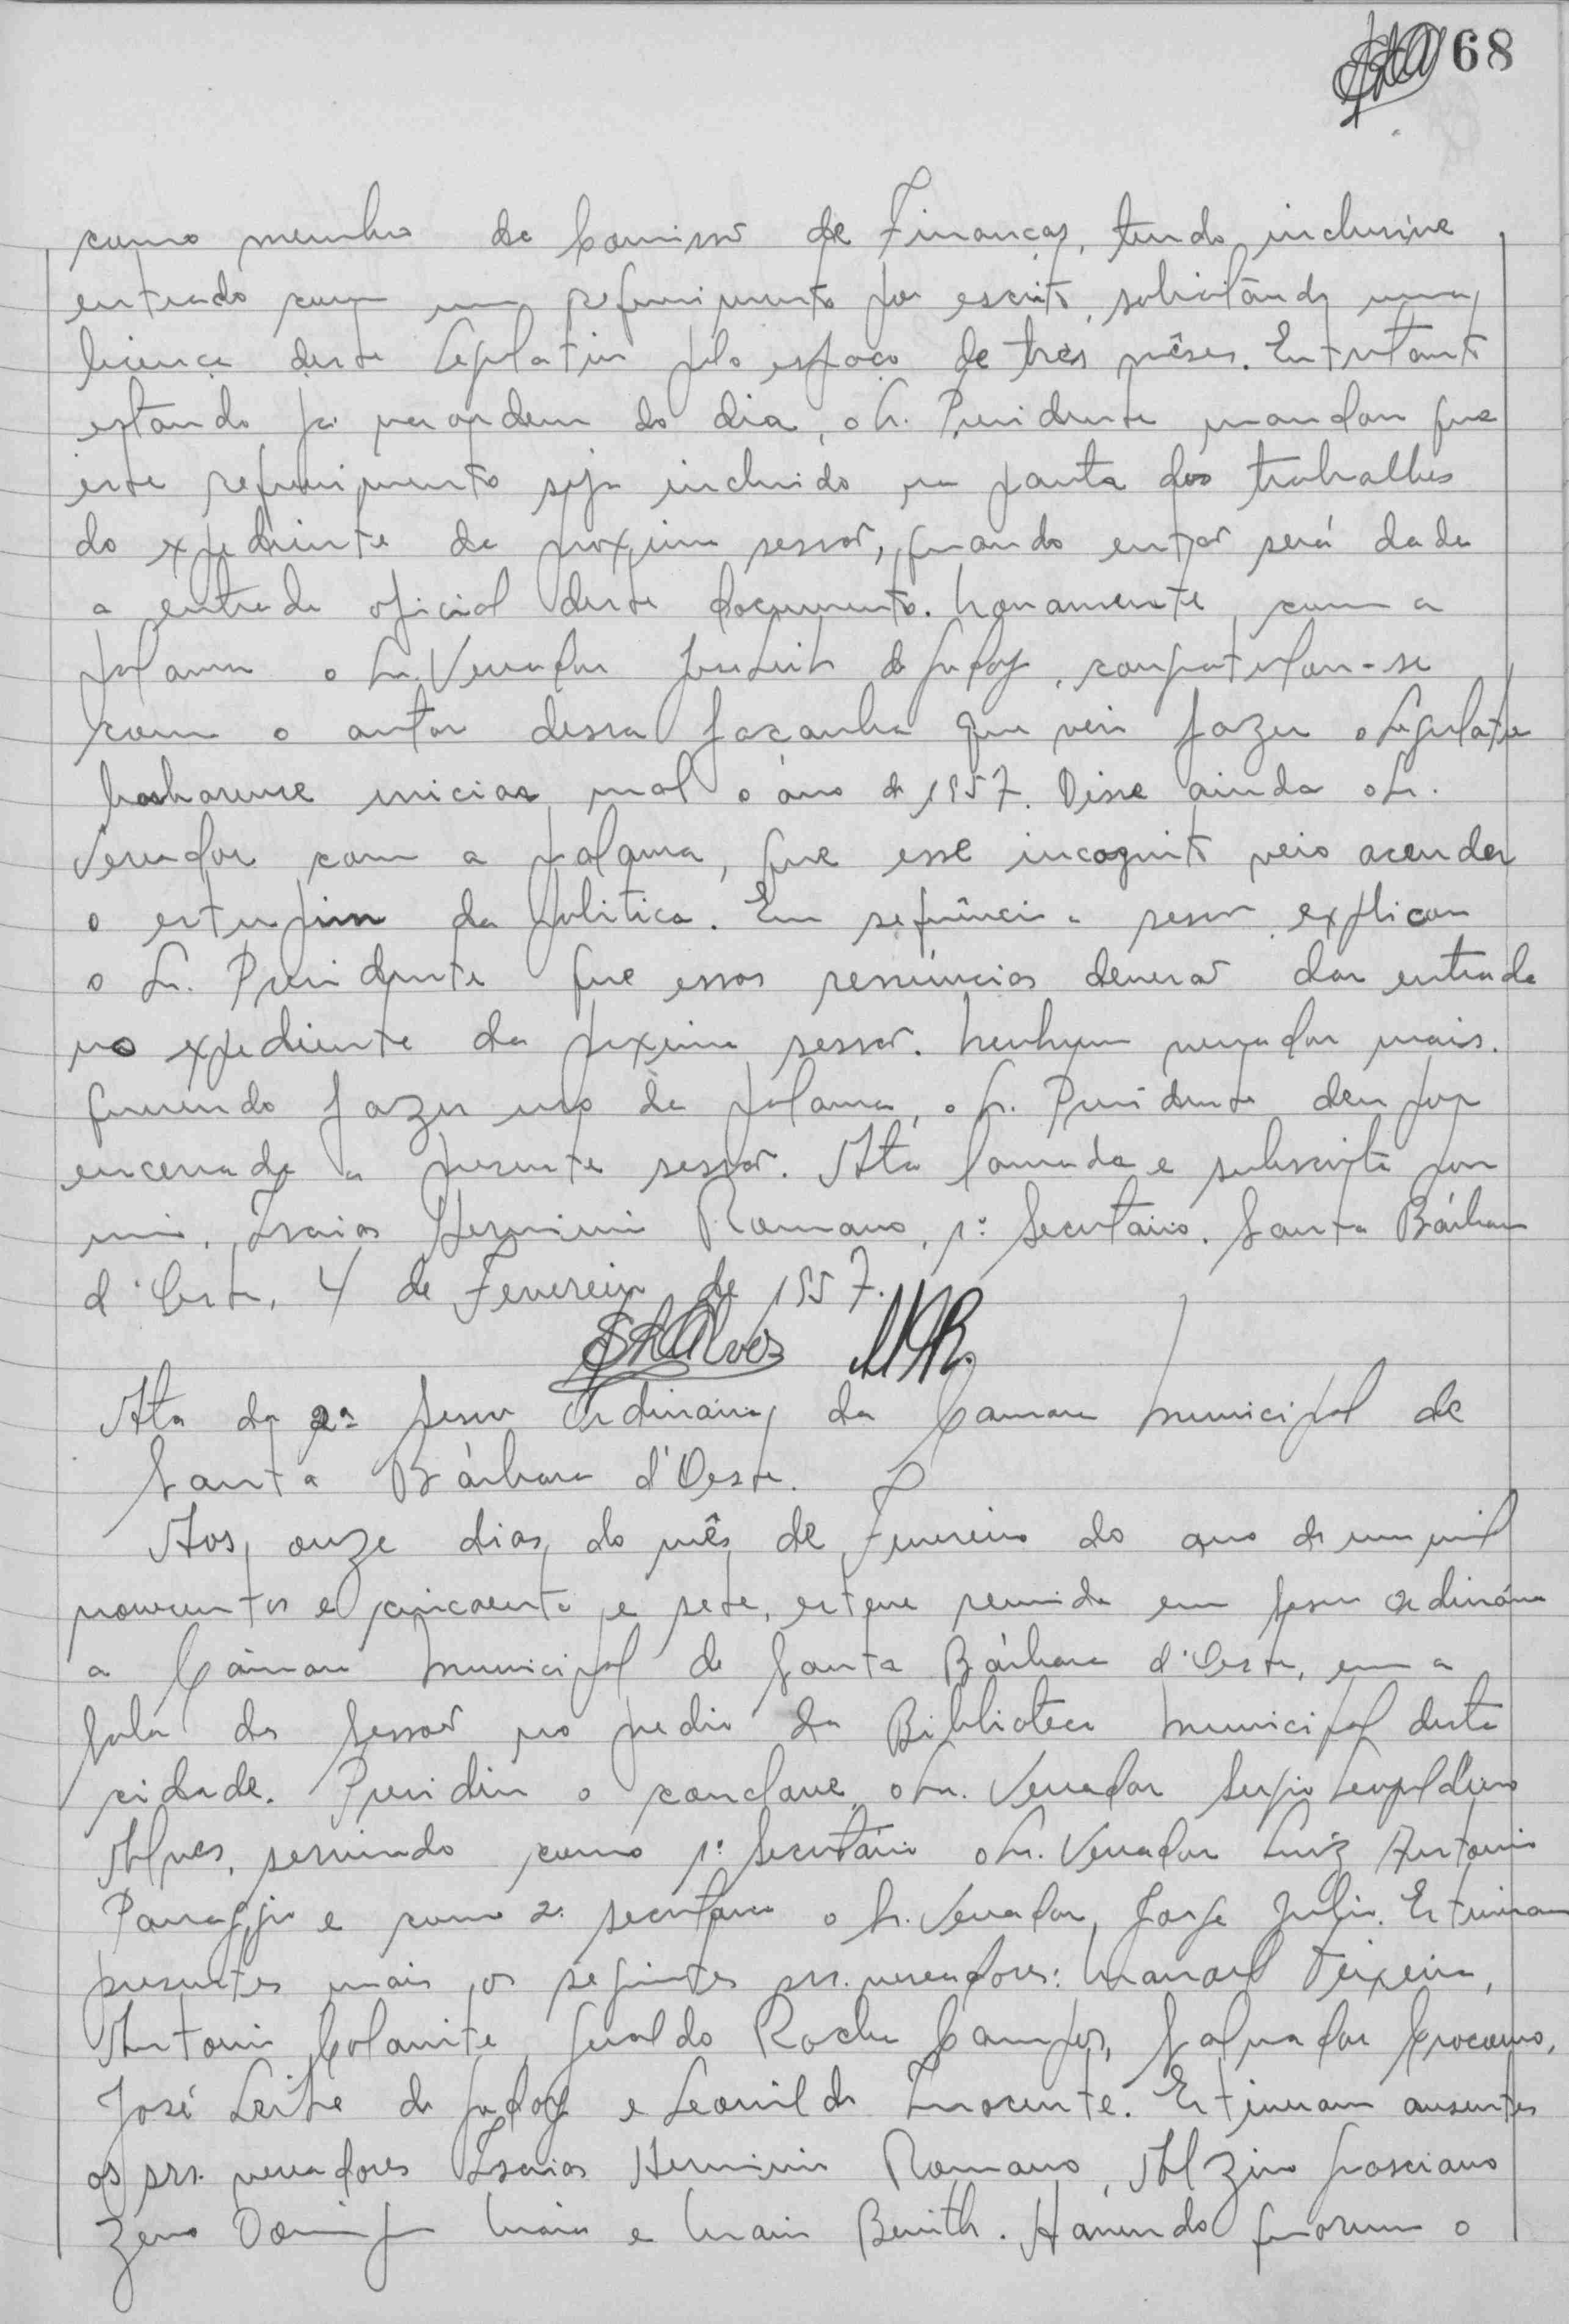 68
como membro da Comissão de Finanças, tendo inclusive
entrado com um requerimento por escrito, solicitando uma
licença deste Legislativo pelo espaço de três mêses. Entretanto
estando já na ordem do dia, o Sr. Presidente mandou que
este requerimento seja incluido na pauta dos trabalhos
do expediente da proxima sessão, quando então será dada
a entrada oficial deste documento. Novamente, com a
palavra o Sr. Vereador José Leite de Godoy, congratulou-se
com o autor dessa façanha que veio fazer o Legislativo
barbarense iniciar mal o ano de 1957. Disse ainda o Sr.
Vereador com a palavra, que esse incognito veio acender
o estupim da politica. Em sequência a sessão explicou
o Sr. Presidente que essas renúncias deverão dar entrada
no expediente da proxima sessão. Nenhum vereador mais
querendo fazer uso da palavra, o Sr. Presidente deu por
encerrada a presente sessão. Ata lavrada e subscrita por
mim, Isaias Herminio Romano, 1º Secretário. Santa Bárbara
d'Oeste, 4 de Fevereiro de 1957.
SLAlves
Ata da 2ª Sessão Ordinaria da Camara Municipal de
Santa Bárbara d'Oeste.
Aos onze dias do mês de Fevereiro do ano de um mil
novecentos e cincoenta e sete, esteve reunida em Sessão Ordinária
a Câmara Municipal de Santa Bárbara d'Oeste, em a
Sala de Sessão no predio da Biblioteca Municipal desta
cidade. Presidiu o conclave o Sr. Vereador Sergio Leopoldino
Alves, servindo como 1º Secretário o Sr. Vereador Luiz Antonio
Panaggio e como 2º secretario o Sr. Vereador Jorge Julio. Estiveram
presentes mais os seguintes srs. vereadores: Manoel Teixeira,
Antonio Colavite, Geraldo Rocha Campos, Salvador Crocomo,
José Leite de Godoy e Leonildo Inocente. Estiveram ausentes
os srs. vereadores Isaias Herminio Romano, Alzino Grasciano
Zeno Domingos Maia e Benith. Havendo quorum o